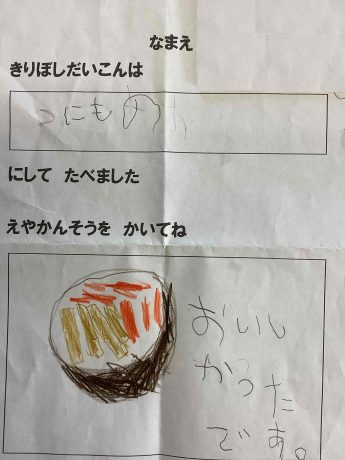 なまえ
きりぼしだいこんは
にもの
にして たべました
えやかんそうを かいてね
おいし
かった
です。